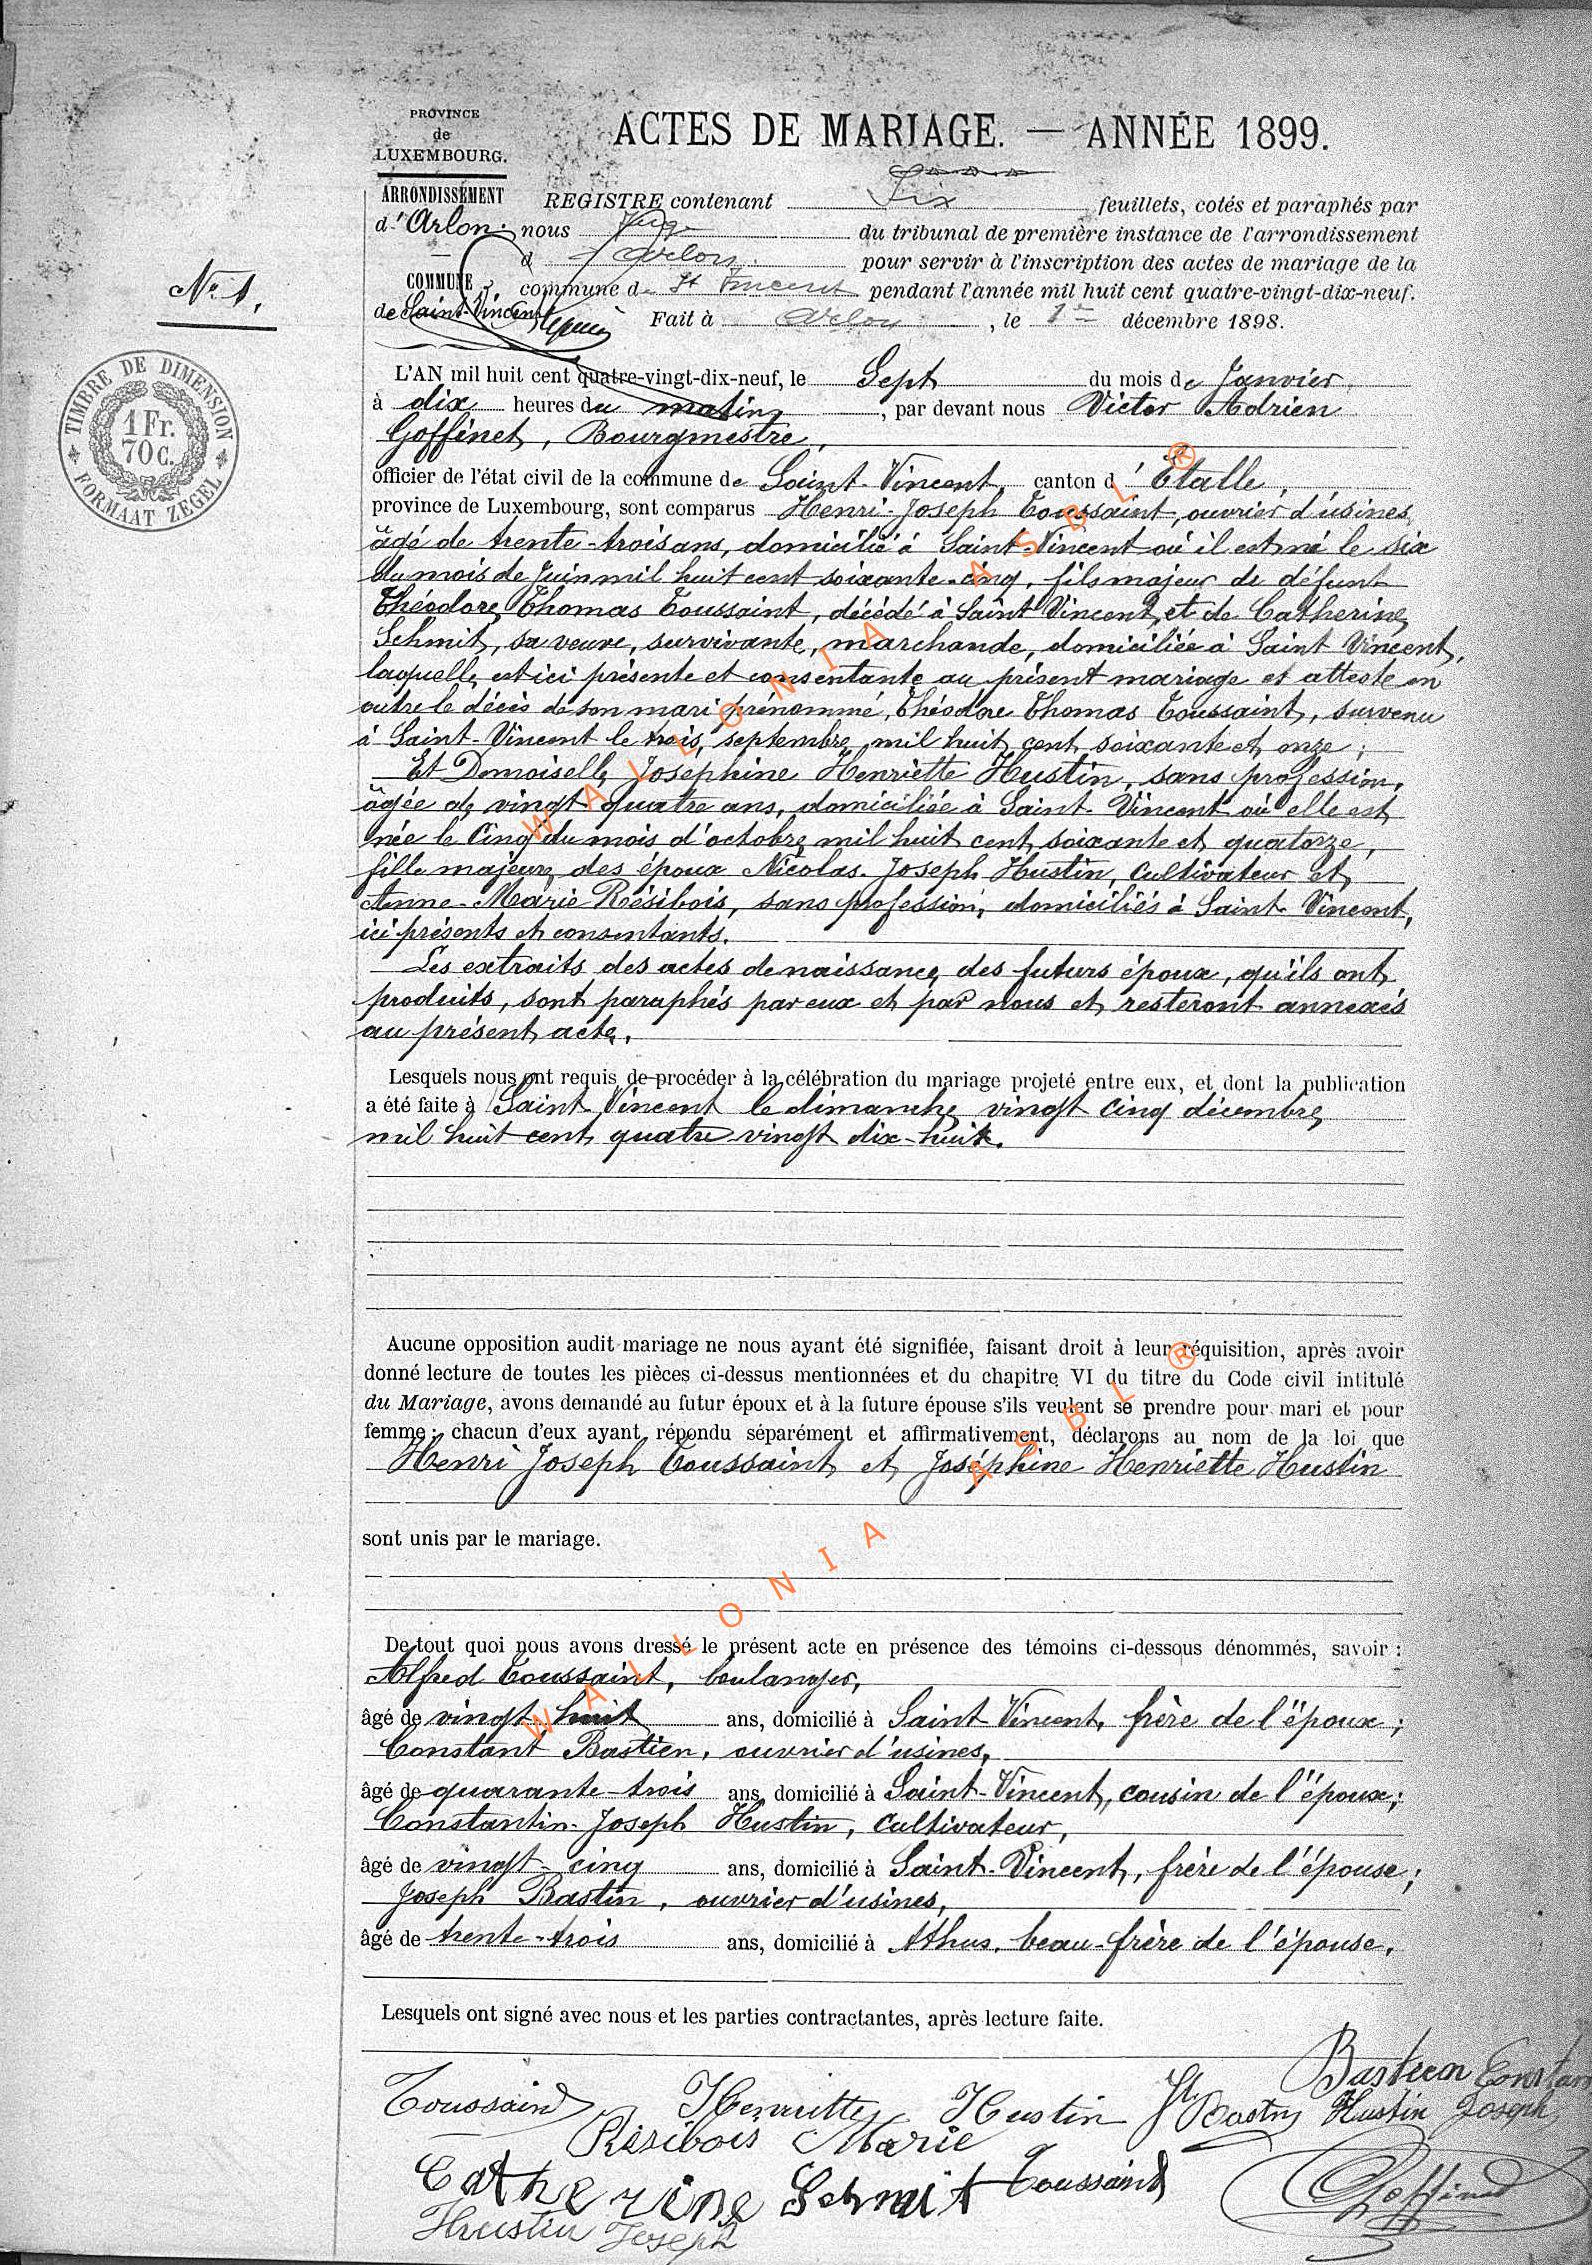 PROVINCE
de
LUXEMBOURG.
ARRONDISSEMENT
d'Arlon.
COMMUNE
de Saint-Vincent
ACTES DE MARIAGE. — ANNÉE 1899.
REGISTRE contenant Six feuillets, cotés et paraphés par
nous Juge du tribunal de première instance de l'arrondissement
d'Arlon. pour servir à l'inscription des actes de mariage de la
commune de St Vincent pendant l'année mil huit cent quatre-vingt-dix-neuf.
Fait à Arlon, le 1er décembre 1898.
No 1.
TIMBRE DE DIMENSION
1 Fr.
70 C.
FORMAAT ZEGEL
L'AN mil huit cent quatre-vingt-dix-neuf, le Sept du mois de Janvier
à dix heures du matin, par devant nous Victor Adrien
Goffinet, Bourgmestre,
officier de l'état civil de la commune de Saint-Vincent, canton d'Etalle,
province de Luxembourg, sont comparus Henri-Joseph Toussaint, ouvrier d'usines,
âgé de trente-trois ans, domicilié à Saint-Vincent où il est né le six
du mois de Juin mil huit cent soixante-cinq, fils majeur de défunt
Théodore Thomas Toussaint, décédé à Saint Vincent, et de Catherine
Schmit, sa veuve, survivante, marchande, domiciliée à Saint Vincent,
laquelle est ici présente et consentante au présent mariage et atteste en
outre le décès de son mari prénommé, Théodore Thomas Toussaint, survenu
à Saint-Vincent le trois septembre mil huit cent soixante et onze;
Et Demoiselle Joséphine Henriette Hustin, sans profession,
âgée de vingt quatre ans, domiciliée à Saint-Vincent où elle est
née le Cinq du mois d'octobre mil huit cent soixante et quatorze,
fille majeure des époux Nicolas-Joseph Hustin, Cultivateur et
Anne-Marie Résibois, sans profession, domiciliés à Saint-Vincent,
ici présents et consentants.
Les extraits des actes de naissance des futurs époux, qu'ils ont
produits, sont paraphés par eux et par nous et resteront annexés
au présent acte.
Lesquels nous ont requis de procéder à la célébration du mariage projeté entre eux, et dont la publication
a été faite à Saint Vincent le dimanche vingt cinq décembre
mil huit cent quatre vingt dix-huit.
Aucune opposition audit mariage ne nous ayant été signifiée, faisant droit à leur réquisition, après avoir
donné lecture de toutes les pièces ci-dessus mentionnées et du chapitre VI du titre du Code civil intitulé
du Mariage, avons demandé au futur époux et à la future épouse s'ils veulent se prendre pour mari et pour
femme; chacun d'eux ayant répondu séparément et affirmativement, déclarons au nom de la loi que
Henri Joseph Toussaint et Joséphine Henriette Hustin
sont unis par le mariage.
De tout quoi nous avons dressé le présent acte en présence des témoins ci-dessous dénommés, savoir :
Alfred Toussaint, boulanger,
âgé de vingt-huit ans, domicilié à Saint Vincent, frère de l'époux;
Constant Bastien, ouvrier d'usines,
âgé de quarante-trois ans, domicilié à Saint-Vincent, cousin de l'époux;
Constantin-Joseph Hustin, Cultivateur,
âgé de vingt-cinq ans, domicilié à Saint-Vincent, frère de l'épouse;
Joseph Bastin, ouvrier d'usines,
âgé de trente-trois ans, domicilié à Athus, beau-frère de l'épouse.
Lesquels ont signé avec nous et les parties contractantes, après lecture faite.
Bastien Constan
Toussaint Henriette Hustin Bastin Hustin Joseph
Résibois Marie
Catherine Schmit Toussaint Goffinet
Hustin Joseph
WALLONIA ASBL ®
WALLONIA ASBL ®